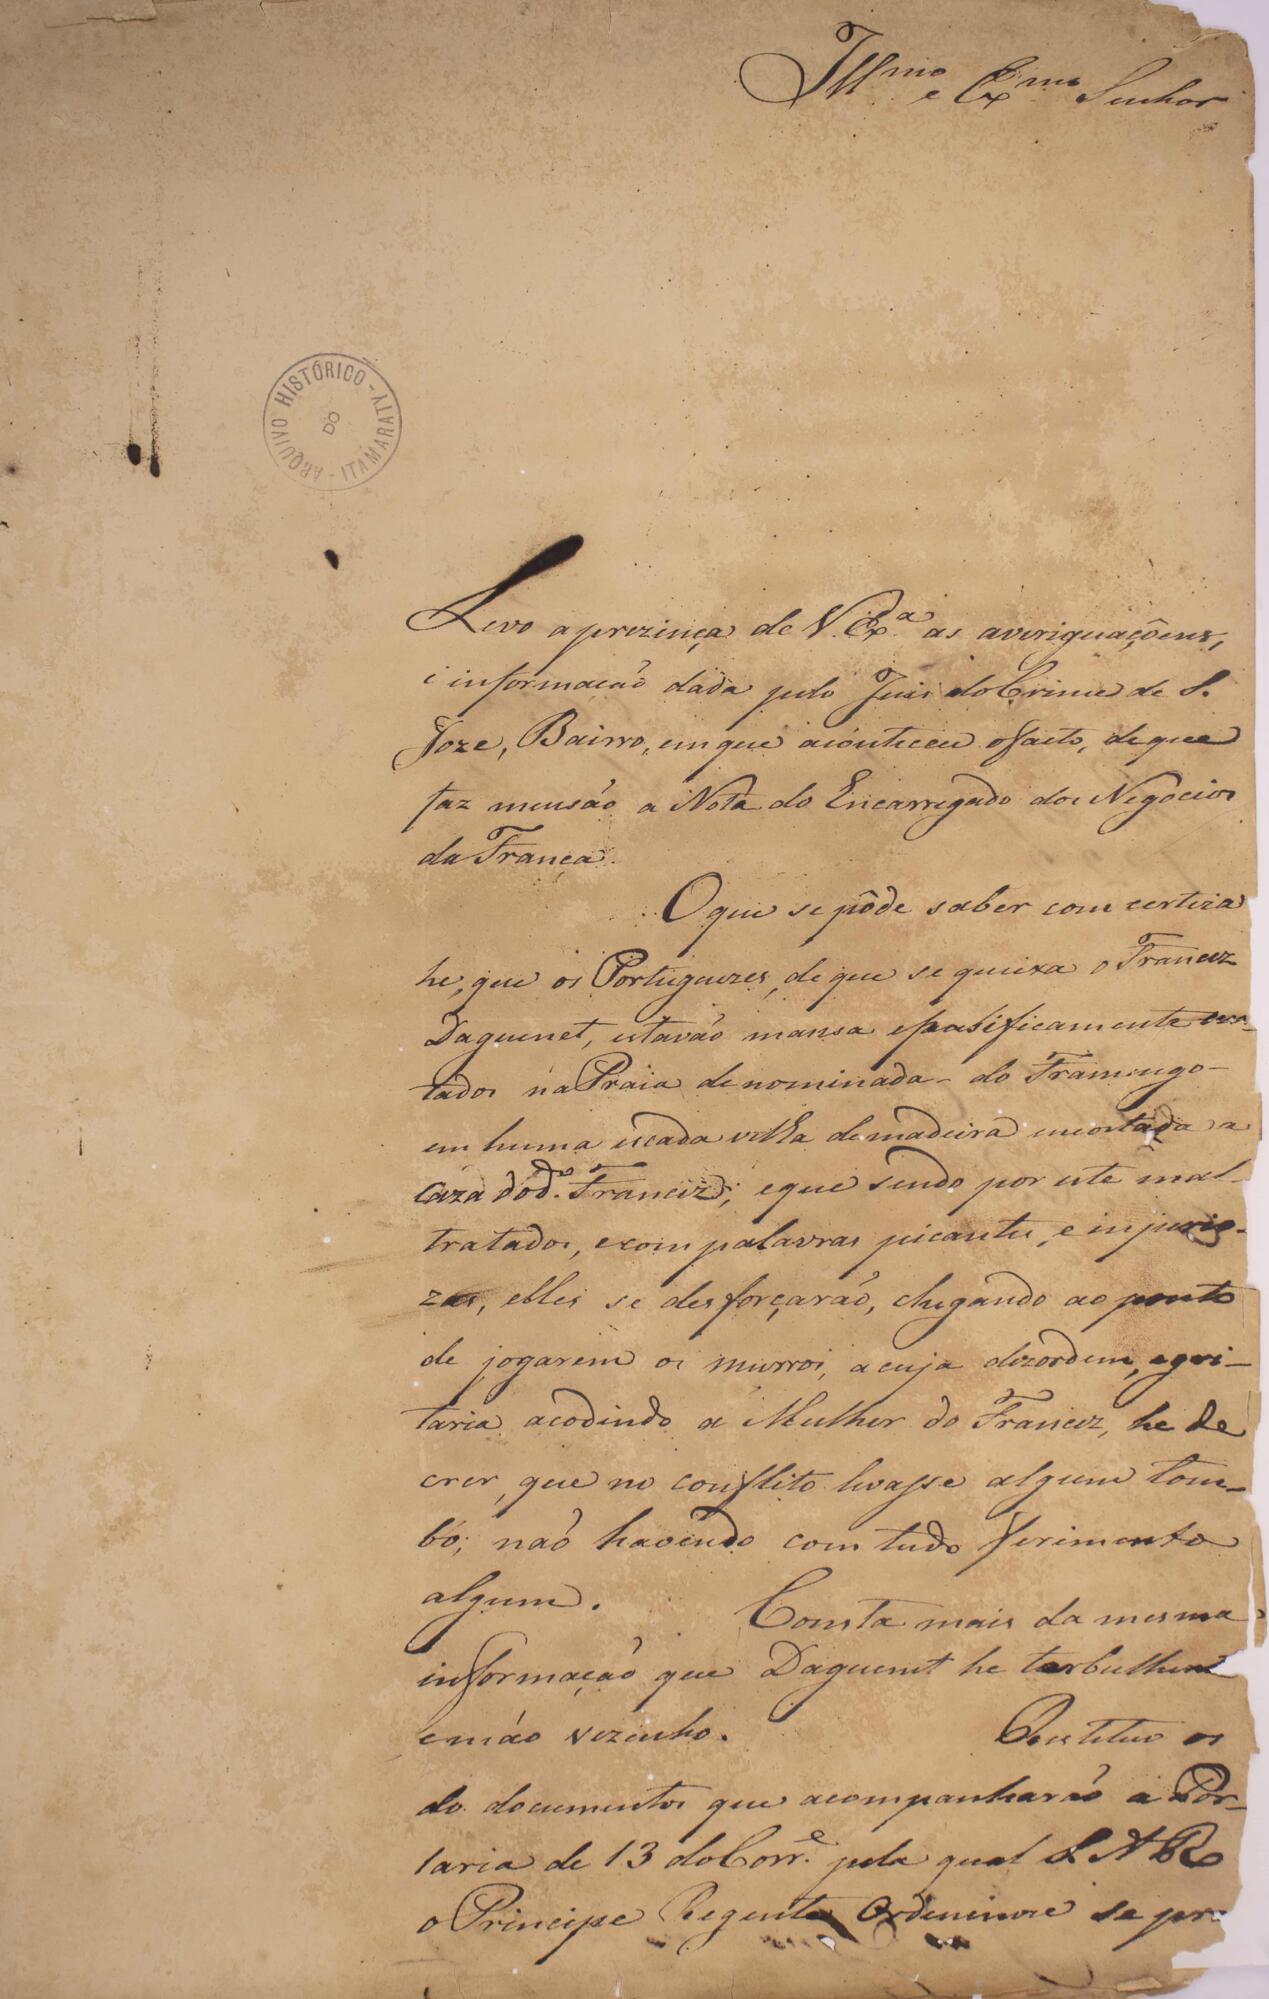 Illmo e Exmo Senhor
ARQUIVO HISTÓRICO
DO
- ITAMARATY -
Levo a prezinça de V. Exa as averiguaçôens,
e informação dada pelo Juis do Crime de S.
Joze, Bairro, em que aconteceu o facto, de que
faz mensão a Nota do Encarregado dos Negôcios
da França.
O que se pôde saber com certeza
he, que os Portuguezes, de que se queixa o Francez
Daguenet, estavão mansa e pasificamente
tados na Praia denominada - do Framengo -
em huma escada velha de madeira encostada a
caza do do. Francez; e que sendo por este mal-
tratados, e com palavras picantes, e injurio-
zas, elles se desforçarão, chegando ao ponto
de jogarem os murros, a cuja dezordem, e gri-
taria acodindo a Mulher do Francez, he de
crer, que no conflito levasse algum tom-
bo; não havendo com tudo ferimento
algum.
Consta mais da mesma
informação que Daguenet he
e máo vezinho.
Restituo os
do. documentos que acompanharão a Por-
taria de 13 do Corre. pela qual S A R
o Principe Regente se